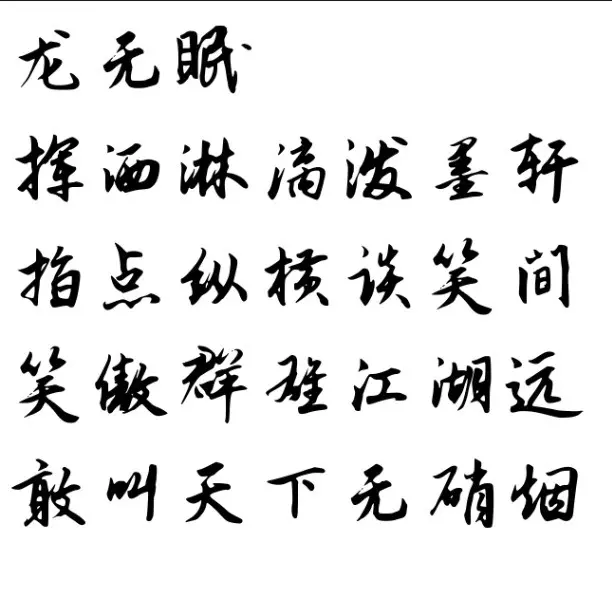 龙无眠
挥洒淋漓泼墨轩
指点纵横谈笑间
笑傲群雄江湖远
敢叫天下无硝烟